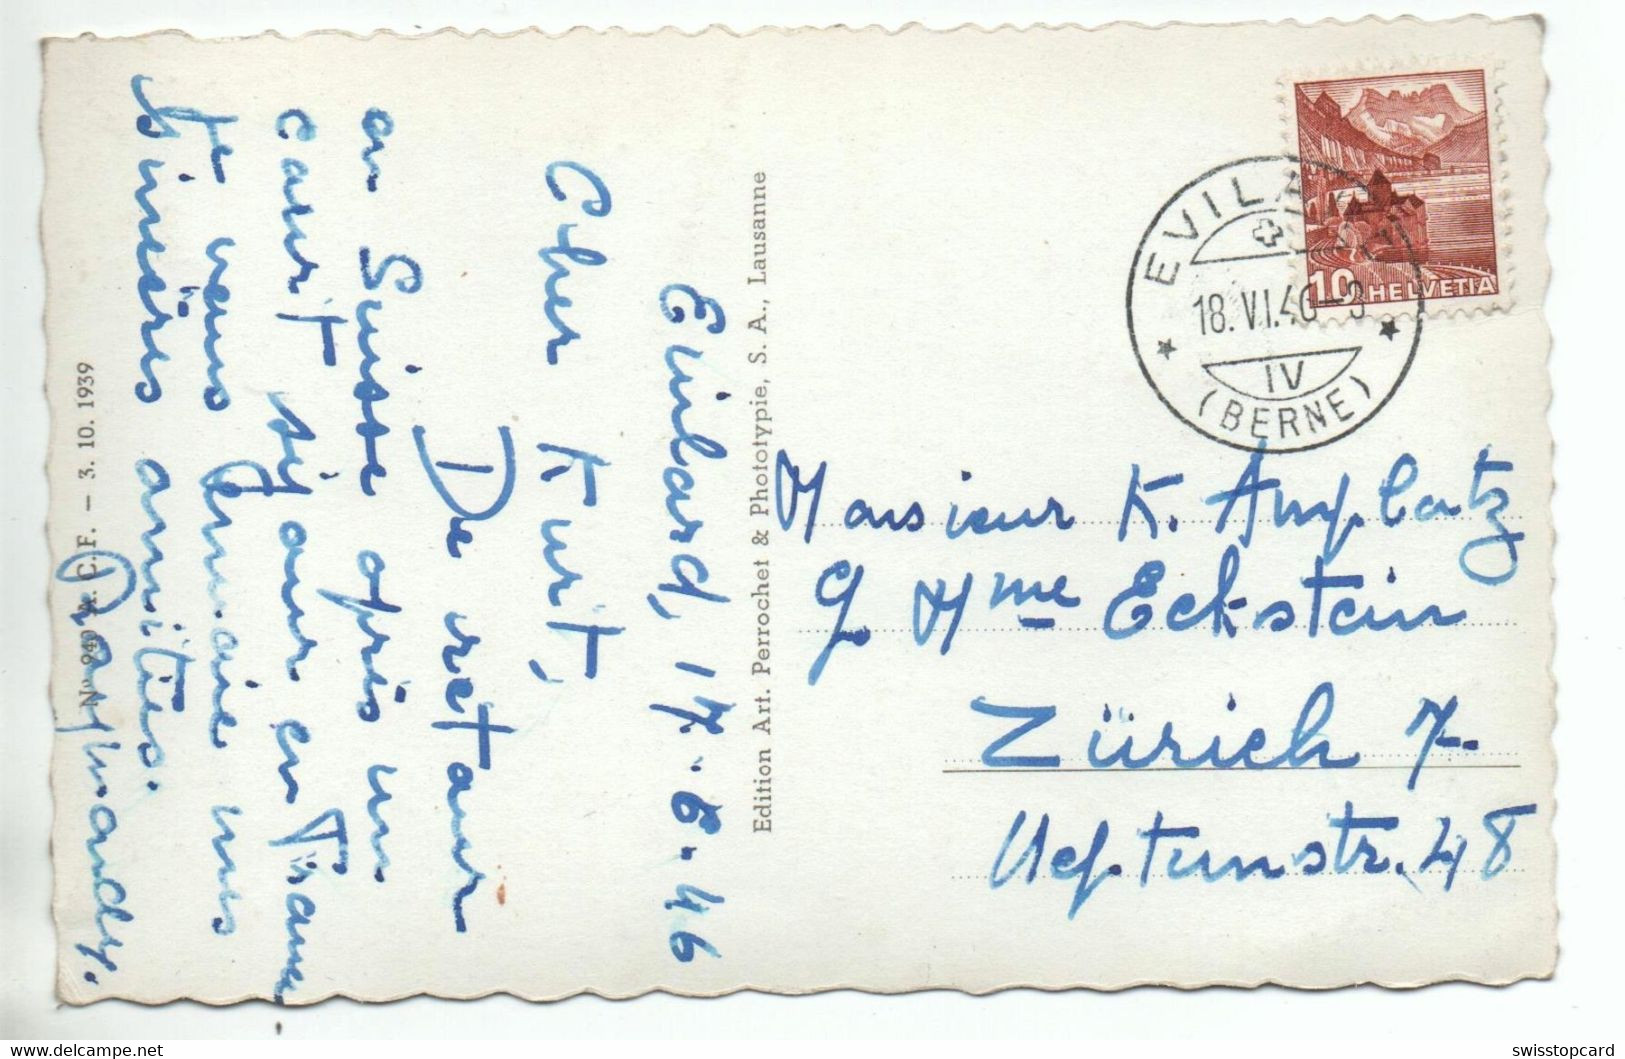 Evilard, 17.6.46
Cher Kurt,
De retour
en Suisse après un
court séjour en France
je vous envoie mes
sincères amitiés.
Edition Art. Perrochet & Phototypie, S. A., Lausanne
A. C. F. — 3. 10. 1939
EVILARD
18.VI.46
IV
(BERNE)
10 HELVETIA
Monsieur K. Amplatz
Mme Eckstein
Zürich 7.
Neptunstr. 48
swisstopcard